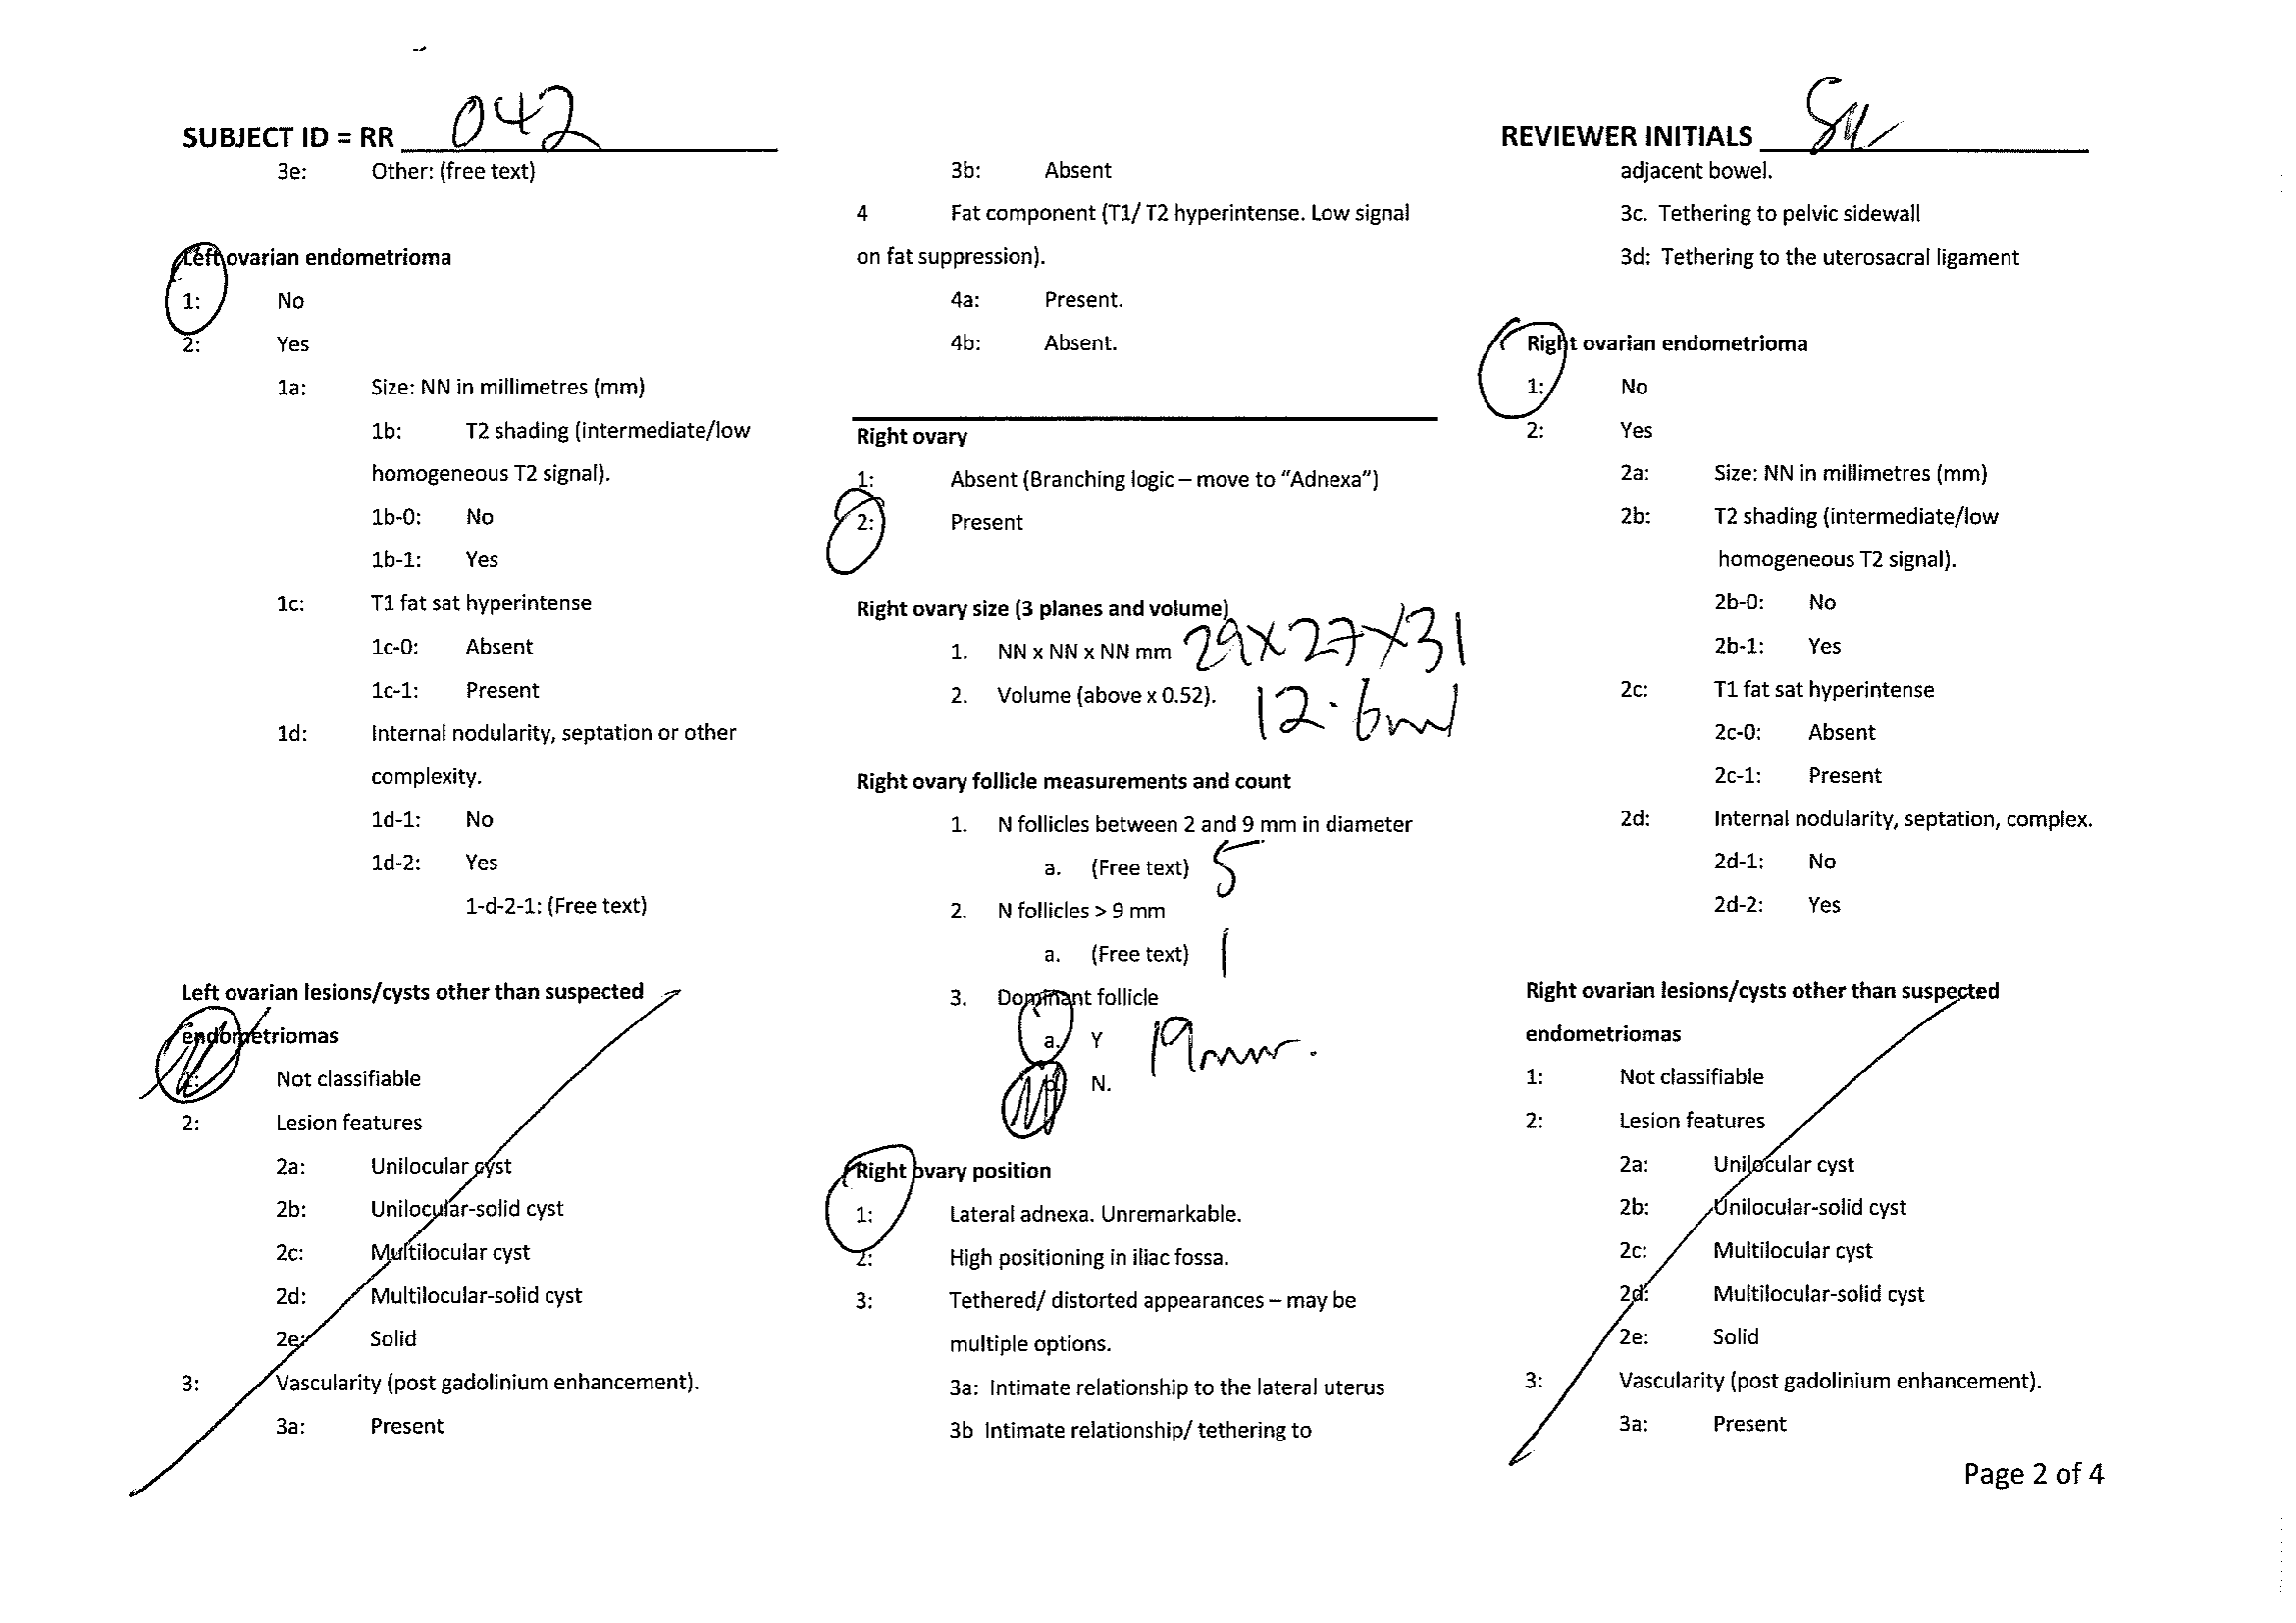 SUBJECT ID = RR 042
3e: Other: (free text)
Left ovarian endometrioma
1: No
2: Yes
1a: Size: NN in millimetres (mm)
1b: T2 shading (intermediate/low
homogeneous T2 signal).
1b-0: No
1b-1: Yes
1c: T1 fat sat hyperintense
1c-0: Absent
1c-1: Present
1d: Internal nodularity, septation or other
complexity.
1d-1: No
1d-2: Yes
1-d-2-1: (Free text)
Left ovarian lesions/cysts other than suspected
endometriomas
1: Not classifiable
2: Lesion features
2a: Unilocular cyst
2b: Unilocular-solid cyst
2c: Multilocular cyst
2d: Multilocular-solid cyst
2e: Solid
3: Vascularity (post gadolinium enhancement).
3a: Present
3b: Absent
4 Fat component (T1/ T2 hyperintense. Low signal
on fat suppression).
4a: Present.
4b: Absent.
Right ovary
1: Absent (Branching logic – move to “Adnexa”)
2: Present
Right ovary size (3 planes and volume)
1. NN x NN x NN mm 29x27x31
2. Volume (above x 0.52). 12.6ml
Right ovary follicle measurements and count
1. N follicles between 2 and 9 mm in diameter
a. (Free text) 5
2. N follicles > 9 mm
a. (Free text) 1
3. Dominant follicle
a. Y 19mm.
b. N.
Right ovary position
1: Lateral adnexa. Unremarkable.
2: High positioning in iliac fossa.
3: Tethered/ distorted appearances – may be
multiple options.
3a: Intimate relationship to the lateral uterus
3b Intimate relationship/ tethering to
REVIEWER INITIALS
adjacent bowel.
3c. Tethering to pelvic sidewall
3d: Tethering to the uterosacral ligament
Right ovarian endometrioma
1: No
2: Yes
2a: Size: NN in millimetres (mm)
2b: T2 shading (intermediate/low
homogeneous T2 signal).
2b-0: No
2b-1: Yes
2c: T1 fat sat hyperintense
2c-0: Absent
2c-1: Present
2d: Internal nodularity, septation, complex.
2d-1: No
2d-2: Yes
Right ovarian lesions/cysts other than suspected
endometriomas
1: Not classifiable
2: Lesion features
2a: Unilocular cyst
2b: Unilocular-solid cyst
2c: Multilocular cyst
2d: Multilocular-solid cyst
2e: Solid
3: Vascularity (post gadolinium enhancement).
3a: Present
Page 2 of 4